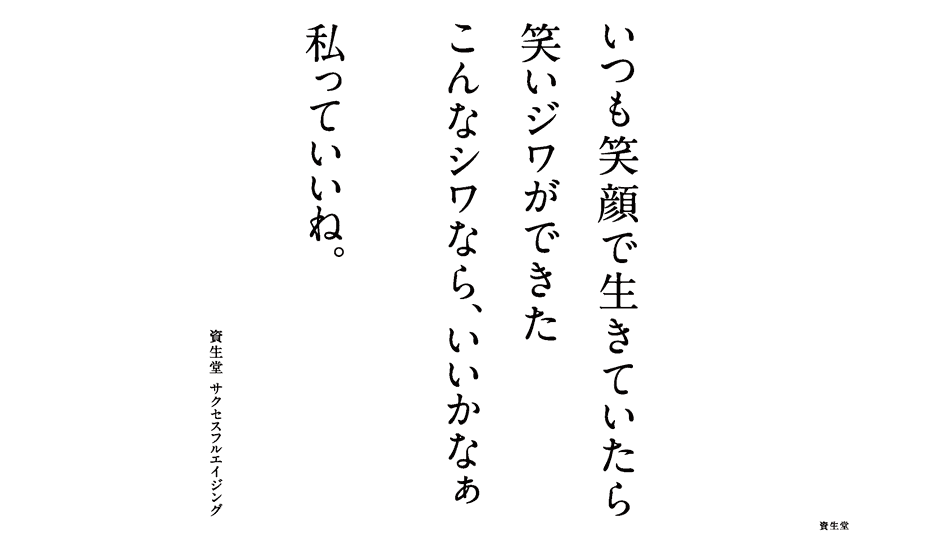 いつも笑顔で生きていたら
笑いジワができた
こんなシワなら、いいかなぁ
私っていいね。
資生堂 サクセスフルエイジング
資生堂